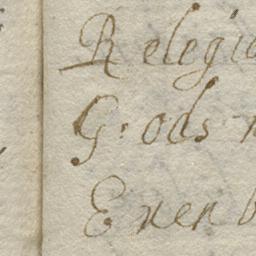 Relegio
Gods
Even b